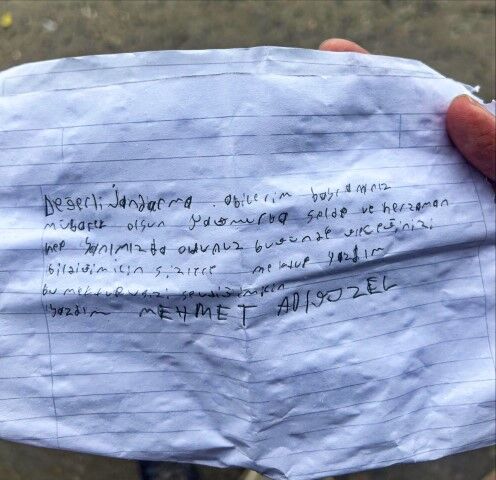 Değerli Jandarma abilerim bayramınız
mübarek olsun Yağmurda selde ve herzaman
hep yanımızda oldunuz bugünde
bildiğim için sizlere mektup yazdım
bu mektubu sizi sevdiğim için
yazdım MEHMET ADIGÜZEL